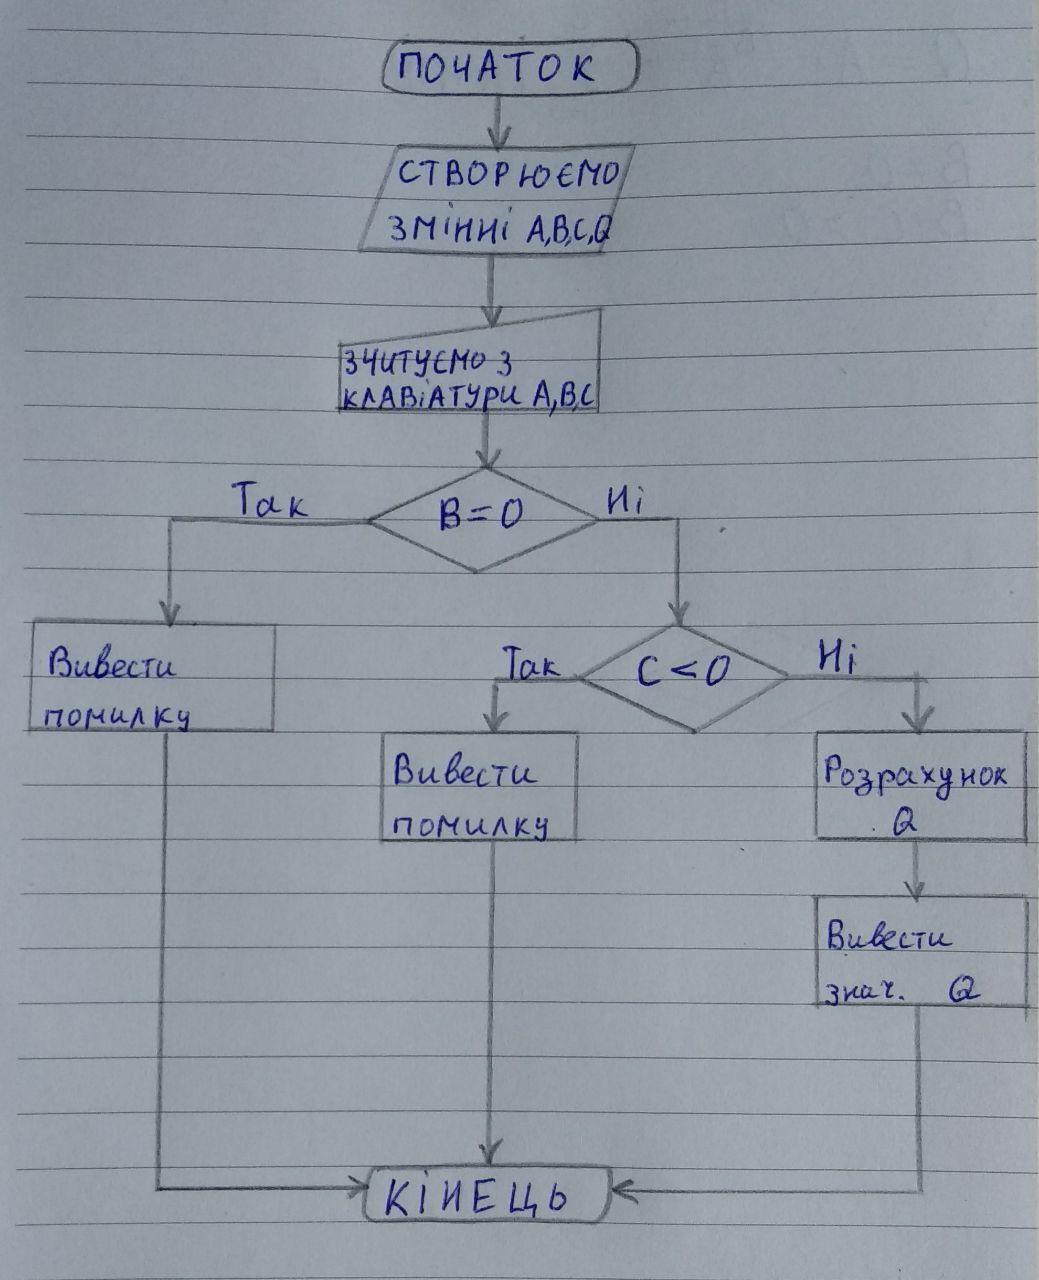 ПОЧАТОК
СТВОРЮЄМО
ЗМІННІ A,B,C,Q
ЗЧИТУЄМО З
КЛАВІАТУРИ A,B,C
B=0
Так
Ні
Вивести
помилку
C<0
Так
Ні
Вивести
помилку
Розрахунок
Q
Вивести
знач. Q
КІНЕЦЬ